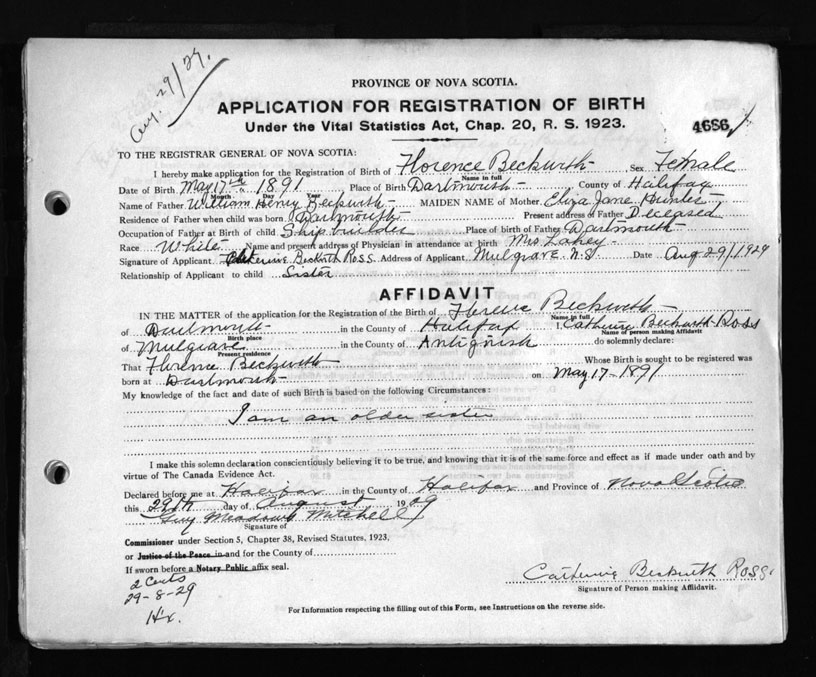 Aug. 29/29.
PROVINCE OF NOVA SCOTIA.
APPLICATION FOR REGISTRATION OF BIRTH
Under the Vital Statistics Act, Chap. 20, R. S. 1923.
4686
TO THE REGISTRAR GENERAL OF NOVA SCOTIA:
I hereby make application for the Registration of Birth of Florence Beckwith Sex Female
Name in full
Date of Birth May 17th 1891 Place of Birth Dartmouth County of Halifax
Month Day Year
Name of Father William Henry Beckwith MAIDEN NAME of Mother Eliza Jane
Residence of Father when child was born Dartmouth Present address of Father Deceased
Occupation of Father at Birth of child Ship builder Place of birth of Father Dartmouth
Race White Name and present address of Physician in attendance at birth Mrs Lahey
Signature of Applicant Catherine Beckwith Ross Address of Applicant Mulgrave N.S Date Aug 29/1929
Relationship of Applicant to child Sister
AFFIDAVIT
IN THE MATTER of the application for the Registration of the Birth of Florence Beckwith
Name in full
of Dartmouth in the County of Halifax I, Catherine Beckwith Ross
Birth place Name of person making Affidavit
of Mulgrave in the County of Antignish do solemnly declare:
Present residence
That Florence Beckwith Whose Birth is sought to be registered was
born at Dartmouth on May 17-1891
My knowledge of the fact and date of such Birth is based on the following Circumstances:
I am an older sister
I make this solemn declaration conscientiously believing it to be true, and knowing that it is of the same force and effect as if made under oath and by
virtue of The Canada Evidence Act.
Declared before me at Halifax in the County of Halifax and Province of Nova Scotia
this 29th day of August 1929
Guy Meadows Mitchell
Signature of
Commissioner under Section 5, Chapter 38, Revised Statutes, 1923,
or Justice of the Peace in and for the County of
If sworn before a Notary Public affix seal.
2 Certs
29-8-29
Hx.
Catherine Beckwith Ross
Signature of Person making Affidavit.
For Information respecting the filling out of this Form, see Instructions on the reverse side.